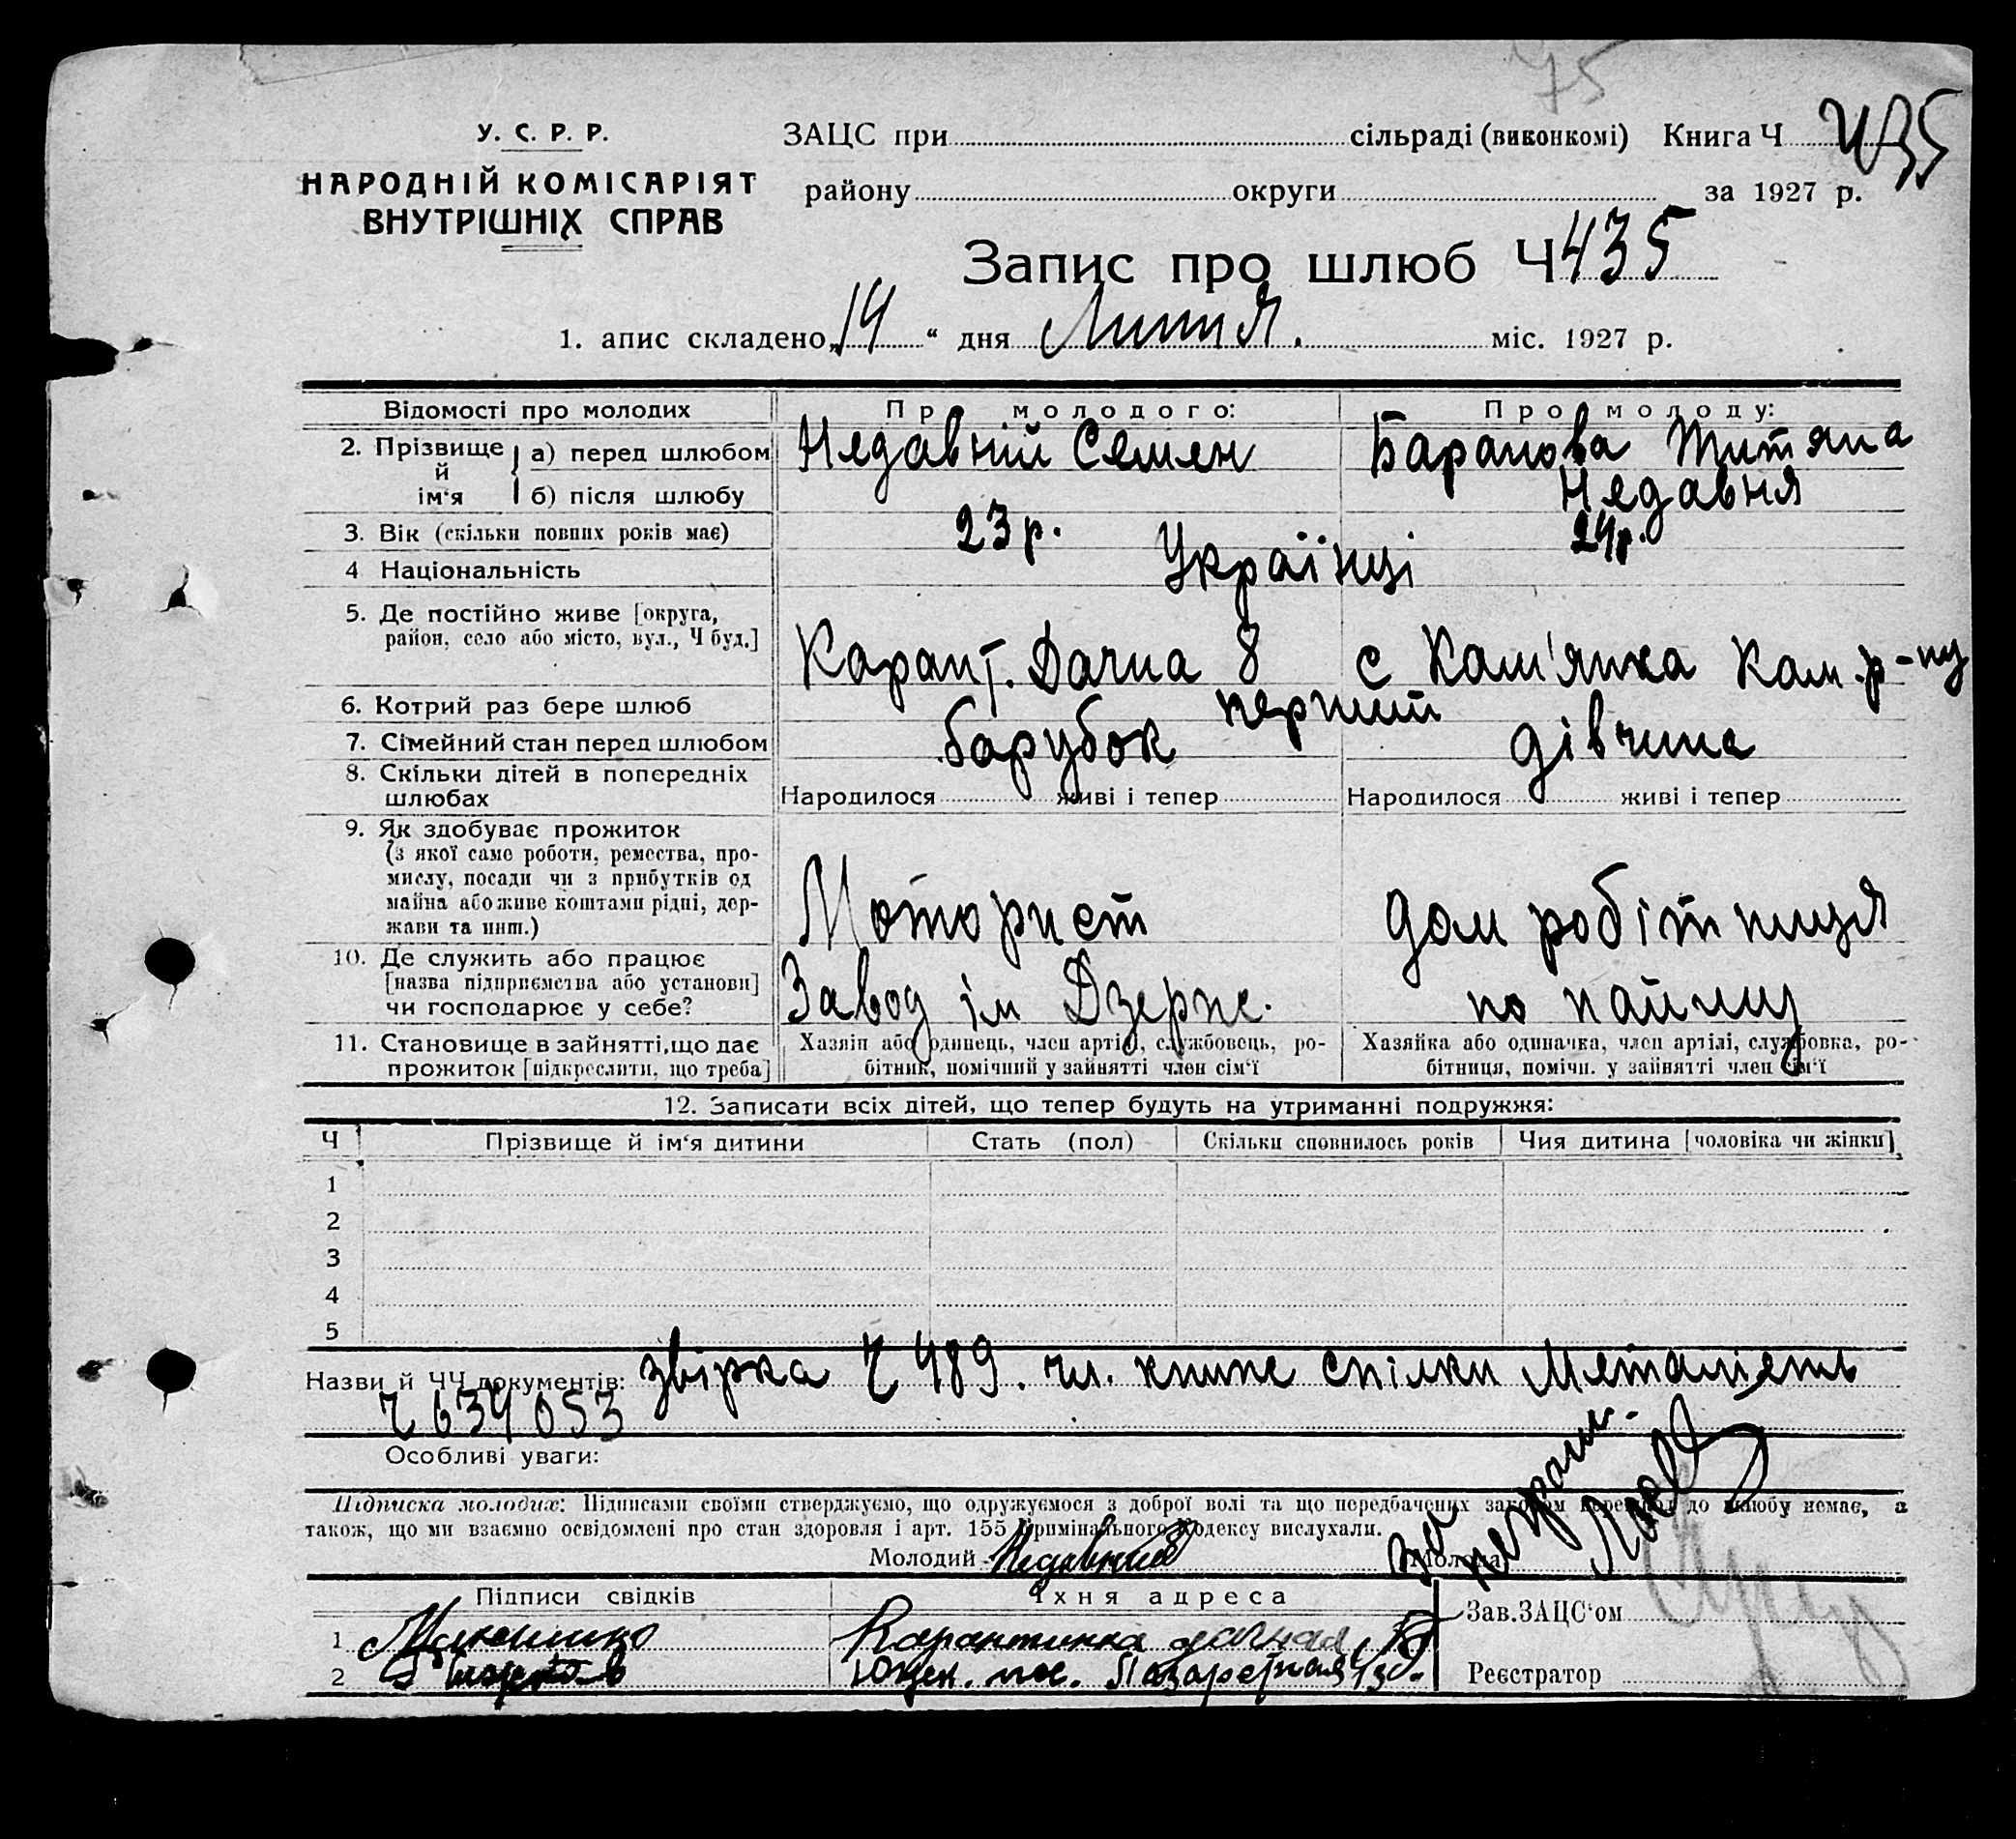 75
У. С. Р. Р.
НАРОДНІЙ КОМІСАРІЯТ
ВНУТРІШНІХ СПРАВ
ЗАЦС при сільраді (виконкомі) Книга Ч 435
району округи за 1927 р.
Запис про шлюб Ч 435
1. апис складено „14“ дня Липня. міс. 1927 р.
Відомості про молодих Про молодого: Про молоду:
2. Прізвище й ім‘я а) перед шлюбом Недавній Семен Баранова Титяна
б) після шлюбу Недавня
3. Вік (скільки повних років має) 23 р. 24 р.
4 Національність Українці
5. Де постійно живе [округа,
район, село або місто, вул., Ч буд.] Карант. Дачна 8 с Кам'янка Кам. р-ну
6. Котрий раз бере шлюб перший
7. Сімейний стан перед шлюбом барубок дівчина
8. Скільки дітей в попередніх
шлюбах Народилося живі і тепер Народилося живі і тепер
9. Як здобуває прожиток
(з якої саме роботи, ремества, про-
мислу, посади чи з прибутків од
майна або живе коштами рідні, дер-
жави та инш.) Моторист дом робітниця
10. Де служить або працює
[назва підприємства або установи]
чи господарює у себе? Завод ім Дзерже. по найму
11. Становище в зайнятті, що дає
прожиток [підкреслити, що треба]
Хазяїн або одинець, член артілі, службовець, ро-
бітник, помічний у зайнятті член сім‘ї
Хазяйка або одиначка, член артілі, службовка, ро-
бітниця, помічн. у зайнятті член сім‘ї
12. Записати всіх дітей, що тепер будуть на утриманні подружжя:
Ч Прізвище й ім‘я дитини Стать (пол) Скільки сповнилось років Чия дитина [чоловіка чи жінки]
1
2
3
4
5
Назви й ЧЧ документів: звірка Ч 489. чл. книже спілки Металієть
Ч 634053
Особливі уваги:
Підписка молодих: Підписами своїми стверджуємо, що одружуємося з доброї волі та що передбачених законом перешкод до шлюбу немає, а
також, що ми взаємно освідомлені про стан здоровля і арт. 155 Кримінального Кодексу вислухали.
Молодий Недавний Молода за неграм.
Підписи свідків Їхня адреса
1 Карантинка дачная
2 Лазаретная
Зав. ЗАЦС‘ом
Реєстратор